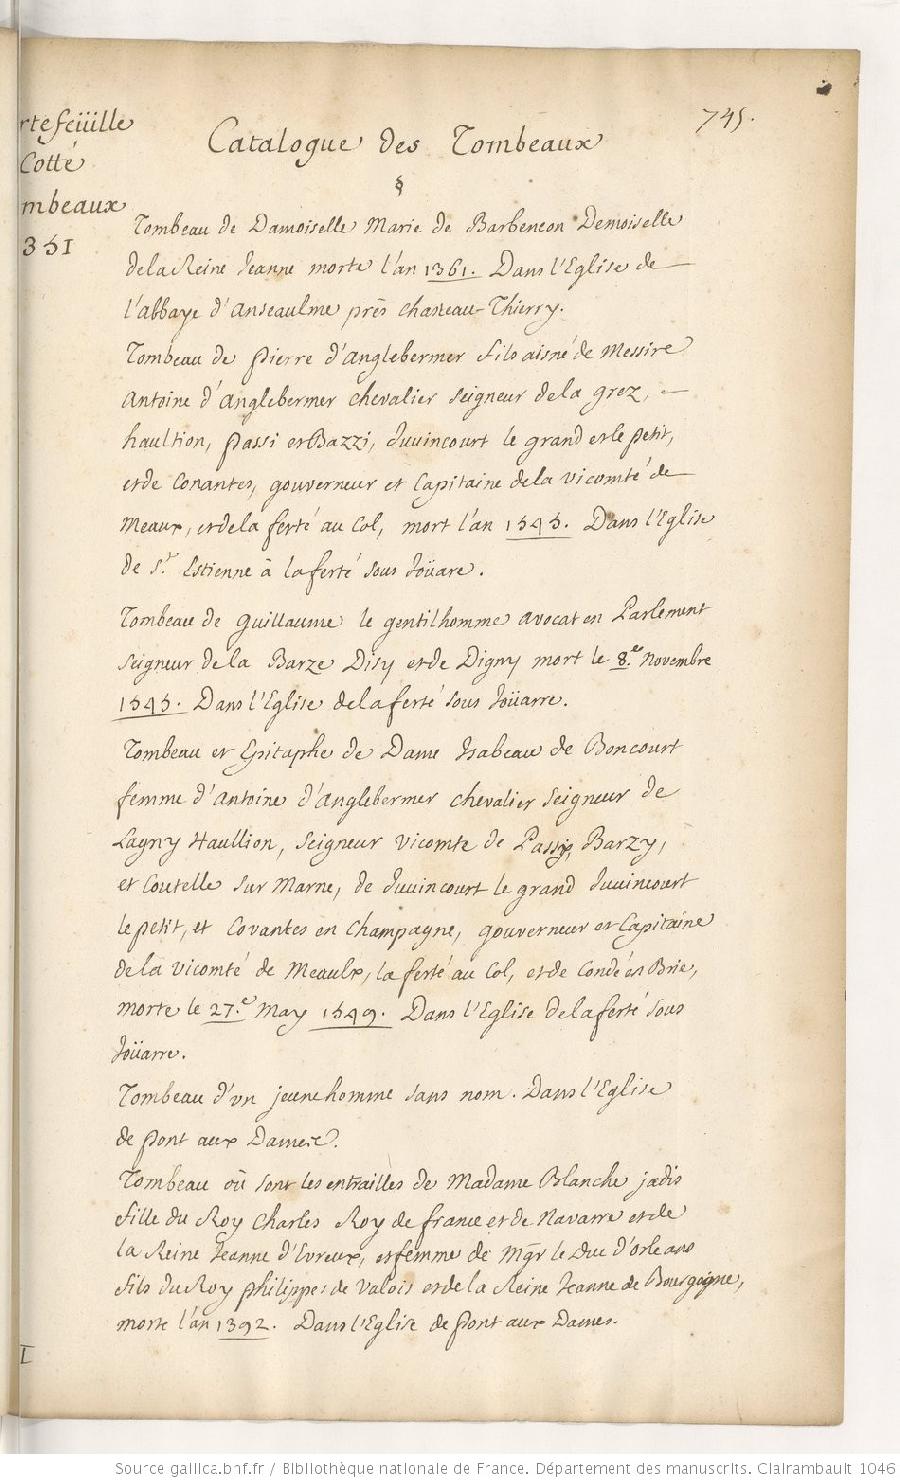 745.
rtefeüille
Cotté
mbeaux
351
Catalogue des Tombeaux
§
Tombeau de Damoiselle Marie de Barbencon Demoiselle
de la Reine Jeanne morte l'an 1361. Dans l'Eglise de
l'abbaye d'anseaulme près chasteau-Thierry.
Tombeau de pierre d'anglebermer fils aisné de Messire
Antoine d'anglebermer chevalier seigneur de la grez,
haultion, passi et Bazzi, Juuincourt le grand et le petit,
et de Conantes, gouverneur et Capitaine de la vicomté de
Meaux, et de la ferté au Col, mort l'an 1545. Dans l'Eglise
de St. Estienne à la ferté sous Joüare.
Tombeau de guillaume le gentilhomme avocat en Parlement
seigneur de la Barze Disy et de Digny mort le 8.e novembre
1545. Dans l'Eglise de la ferté sous Joüarre.
Tombeau et Epitaphe de Dame Isabeau de Boncourt
femme d'antoine d'anglebermer chevalier seigneur de
Lagny Haullion, seigneur vicomte de Passy, Barzy,
et Coutelle sur Marne, de Juuincourt le grand Juuincourt
le petit, et Covantes en champagne, gouverneur et Capitaine
de la vicomté de Meaulx, la ferté au Col, et de Condé en Brie,
morte le 27.e May 1549. Dans l'Eglise de la ferté sous
Joüarre.
Tombeau d'vn jeune homme sans nom. Dans l'Eglise
de pont aux Dames.
Tombeau où sont les entrailles de Madame Blanche jadis
fille du Roy Charles Roy de france et de Navarre et de
la Reine Jeanne d'Evreux, et femme de Mgr le Duc d'orleans
fils du Roy philippes de Valois et de la Reine Jeanne de Bourgogne,
morte l'an 1392. Dans l'Eglise de pont aux Dames.
I
Source gallica.bnf.fr / Bibliothèque nationale de France. Département des manuscrits. Clairambault 1046